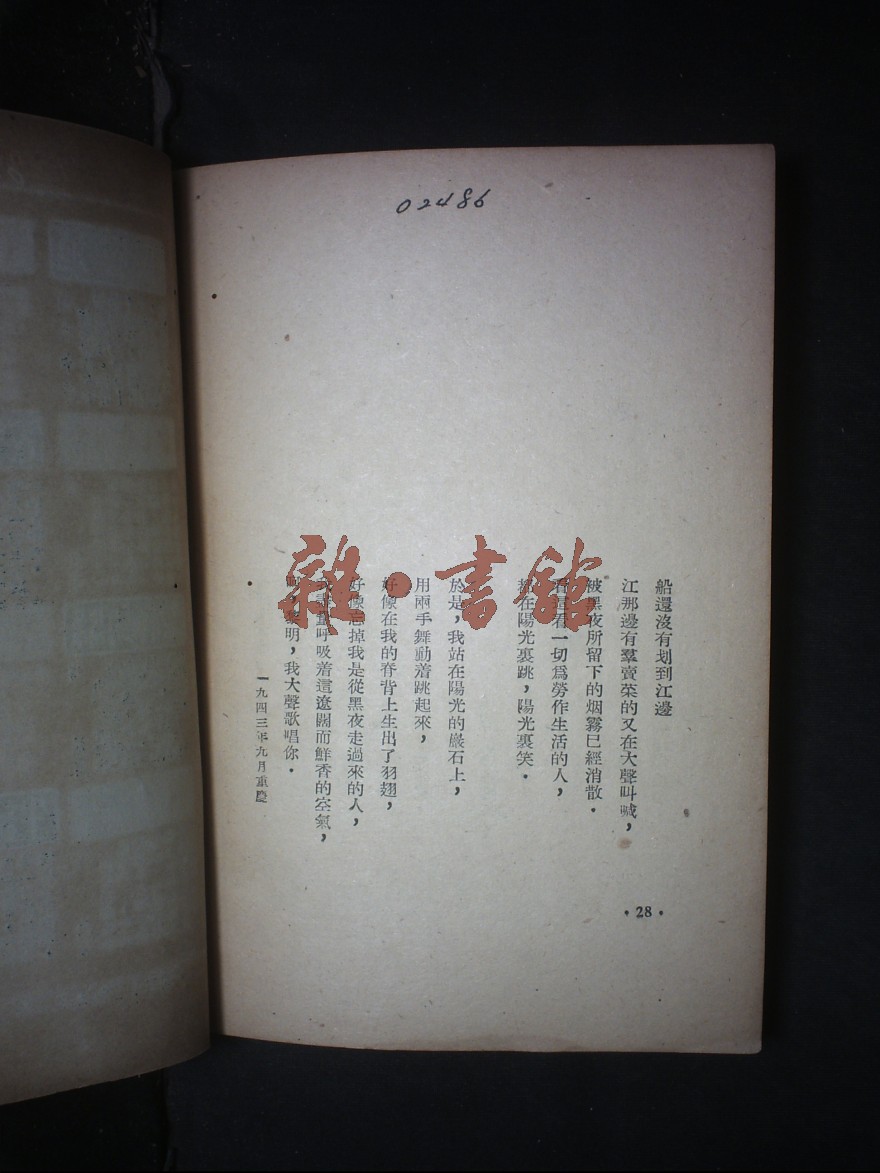 02486
船還沒有划到江邊
江那邊有羣賣菜的又在大聲叫喊，
被黑夜所留下的烟霧已經消散．
看一切爲勞作生活的人，
都在陽光裏跳，陽光裏笑．
於是，我站在陽光的巖石上，
用兩手舞動着跳起來，
好像在我的脊背上生出了羽翅，
好像忘掉我是從黑夜走過來的人，
呼吸着這遼闊而鮮香的空氣，
黎明，我大聲歌唱你．
一九四三年九月重慶
•28•
雜·書館